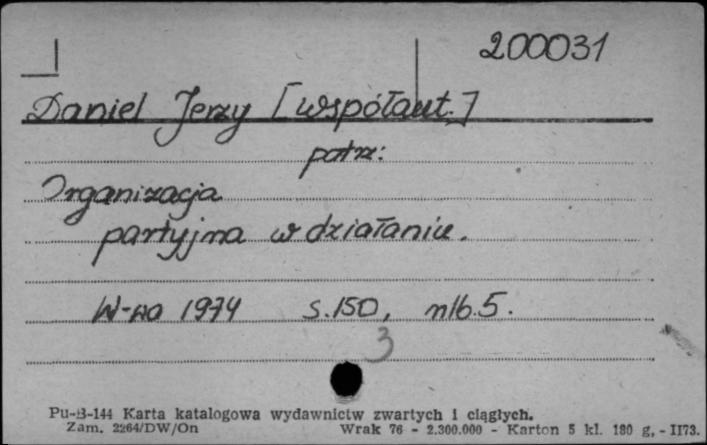 200031
Daniel Jerzy [współaut.]
patrz:
Organizacja
partyjna w działaniu.
W-wa 1974 s. 150, nlb. 5.
3
Pu-B-144 Karta katalogowa wydawnictw zwartych i ciągłych.
Zam. 2264/DW/On Wrak 76 - 2.300.000 - Karton 5 kl. 180 g. - II73.